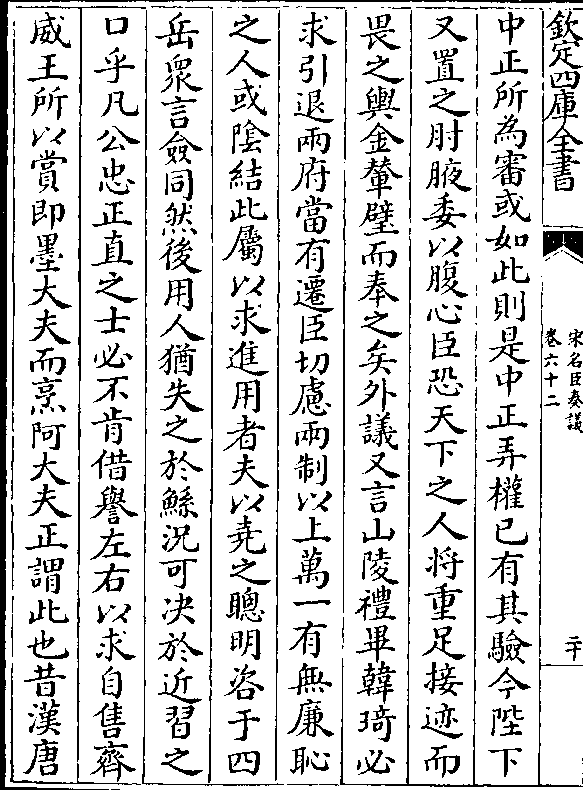 欽定四庫全書
宋名臣奏議
卷六十二
二十
中正所為審或如此則是中正弄權已有其驗今陛下
又置之肘腋委以腹心臣恐天下之人将重足接迹而
畏之輿金輦璧而奉之矣外議又言山陵禮畢韓琦必
求引退兩府當有遷臣切慮兩制以上萬一有無廉恥
之人或陰結此屬以求進用者夫以堯之聰明咨于四
岳衆言僉同然後用人猶失之於鯀況可決於近習之
口乎凡公忠正直之士必不肯借譽左右以求自售齊
威王所以賞即墨大夫而烹阿大夫正謂此也昔漢唐